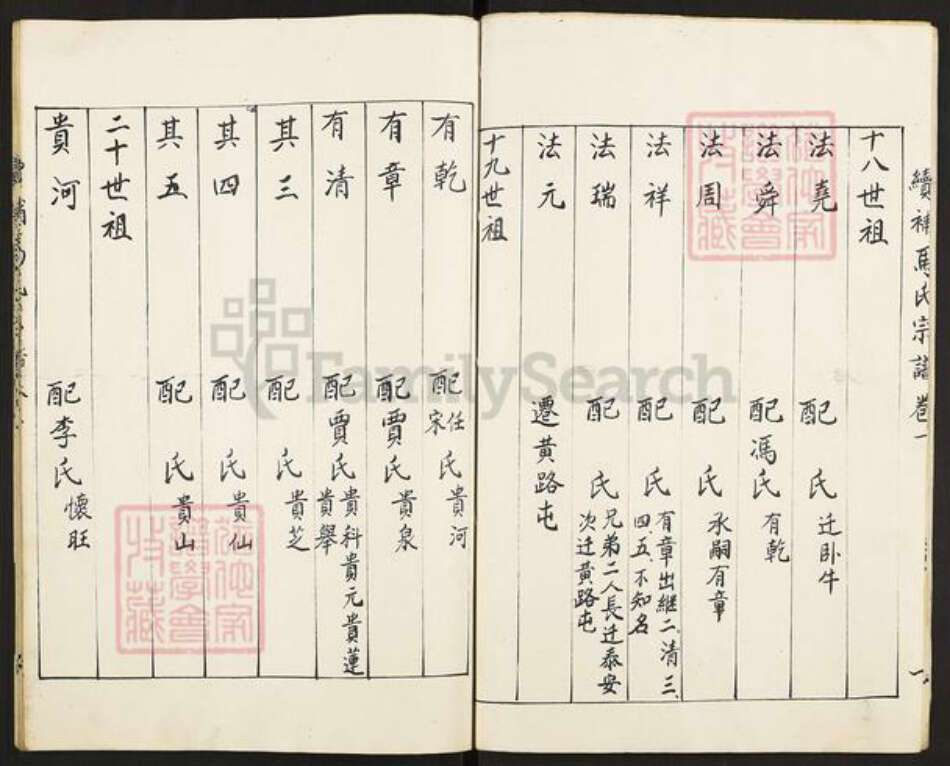 續補馬氏宗譜卷一
十八世祖
法堯 配 氏 迁卧牛
法舜 配馮氏 有乾
法周 配 氏 承嗣有章
法祥 配 氏 有章出継二.清三.
四.五.不知名
法瑞 配 氏 兄弟二人長迁泰安
次迁黄路屯
法元 遷黄路屯
十九世祖
有乾 配任宋氏 貴河
有章 配賈氏 貴泉
有清 配賈氏 貴科貴元貴蓮
貴舉
其三 配 氏 貴芝
其四 配 氏 貴仙
其五 配 氏 貴山
二十世祖
貴河 配李氏 懷旺
FamilySearch